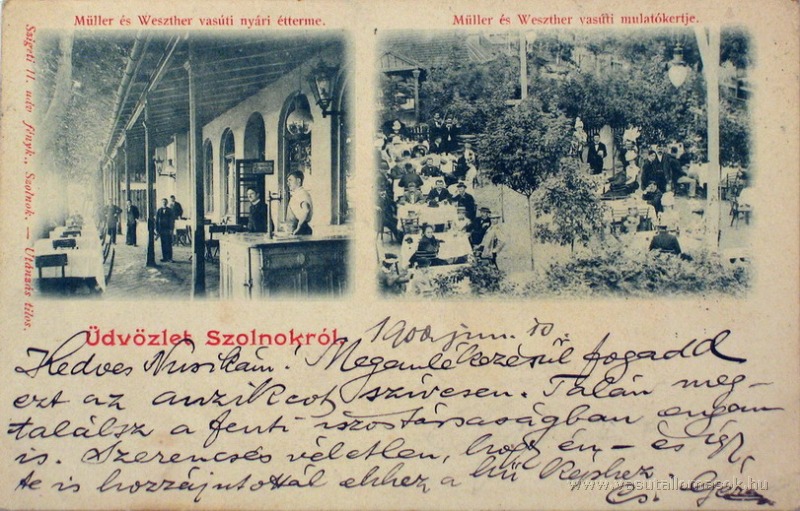 Müller és Weszther vasúti nyári étterme.
Müller és Weszther vasúti mulatókertje.
Szigeti H. udv. fényk., Szolnok. — Utánzás tilos.
Üdvözlet Szolnokról.
1900 jun. 10.
Kedves Nusikám! Megemlékezésül fogadd
ezt az anzikcot szívesen. Talán meg-
találsz a fenti iszostársaságban engem
is. Szerencsés véletlen, hogy én – és így
te is hozzájutottál ehhez a hű képhez.
Cs. Géza
www.vasutallomasok.hu